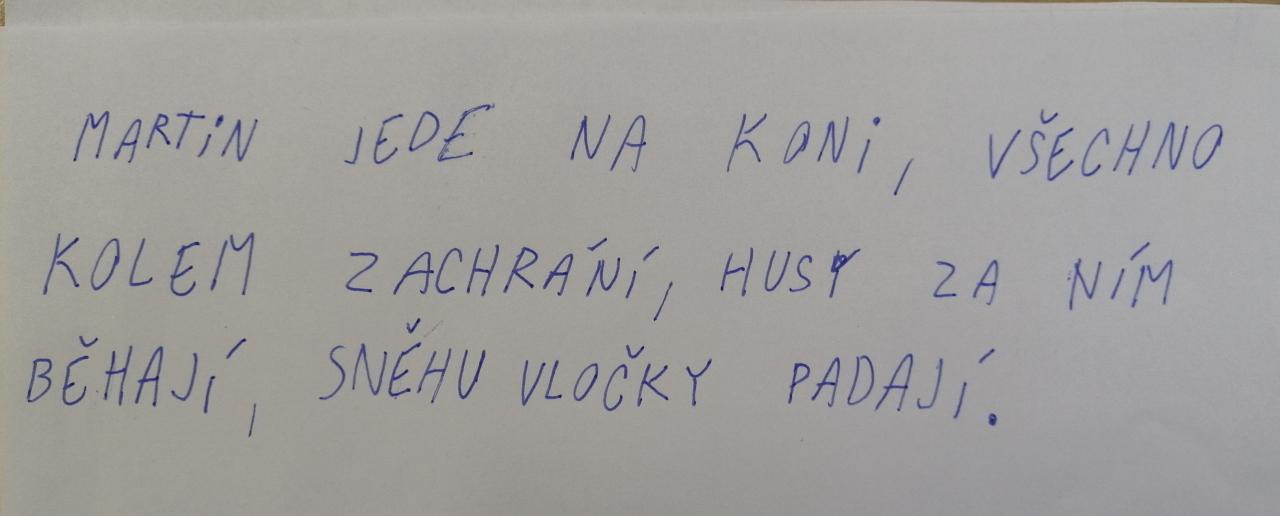 MARTiN JEDE NA KONi, VŠECHNO
KOLEM ZACHRÁNÍ, HUSY ZA NÍM
BĚHAJÍ, SNĚHU VLOČKY PADAJÍ.